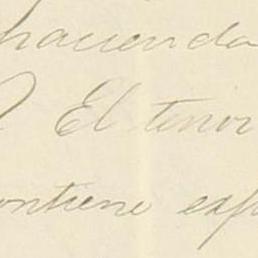 hacienda
El tenor
contiene exp